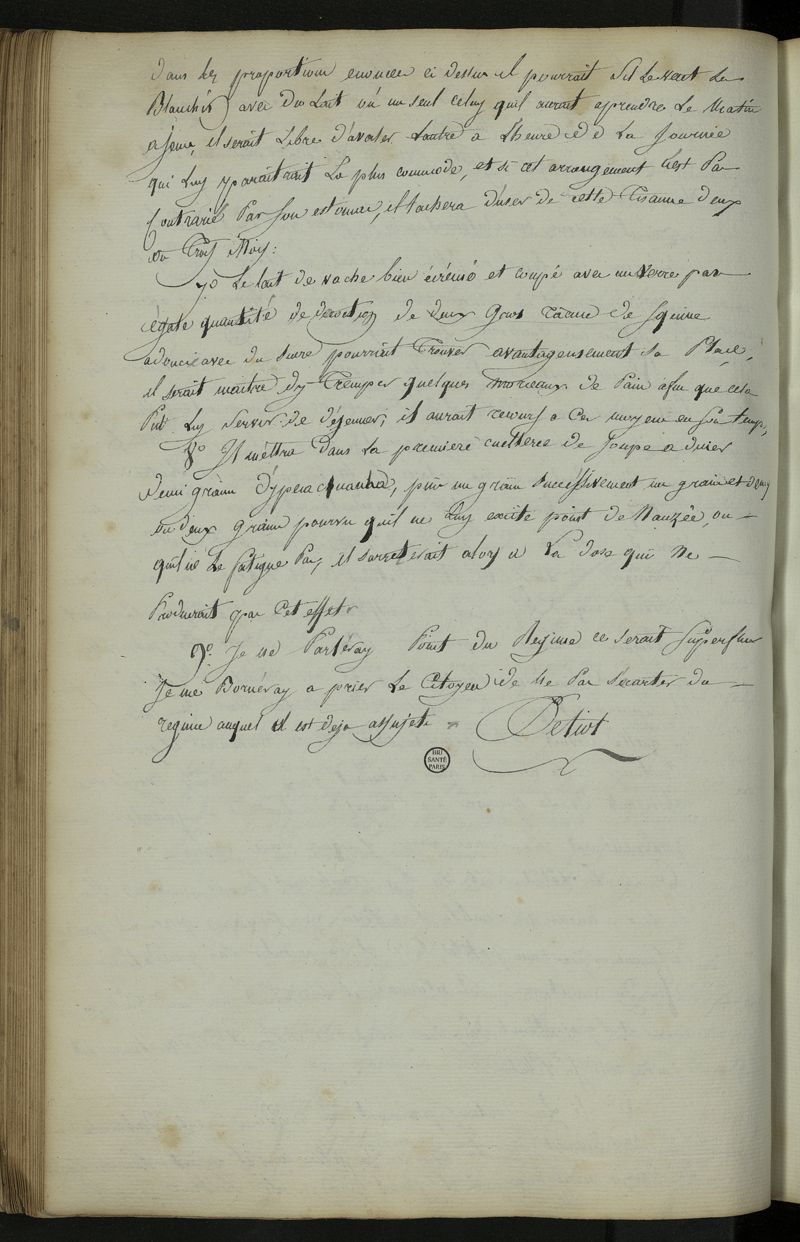 dans les proportions enoncees ci dessus il pourrait s'il le veut la
Blanchir avec du Lait ou un seul celuy quil aurait aprendre Le Matin
a jeun, il serait Libre d'avaler Lautre a Lheure de La Journée
qui Luy yparaitrait La plus commode, et si cet arrangement nest Pas
Contrarié Par son estomac, il tachera d'user de cette Tisanne deux
ou Troy Moiy:
7o Le lait de vache bien écrémé et coupé avec un verre par
égale quantité de decoction de deux Gros racine de Squine
adoucie avec du sucre pourrait Trouver avantageusement sa Place,
il serait maitre dy Tremper quelques morceaux de Pain afin que cela
Put Luy Servir de déjeuner, il aurait recours a ces moyens en son temps,
8o Il mettra dans La premiere cuilleree de Soupe a diner
demi grain d'ypecacuanha, puis un grain Successivement un grain et demy
ou deux grains pourvu quil ne Luy excite point de Nauzée, ou
quil ne Le fatigue Pas, il sarretterait aloy a La dose qui Ne
Produirait pas Cet effet
9o Je ne Parleray Point du Regime ce serait Superflu
Je me Borneray a prier Le Citoyen de Ne Pas Secarter du
regime auquel il est deja assujeti
Petiot
BIU
SANTÉ
PARIS